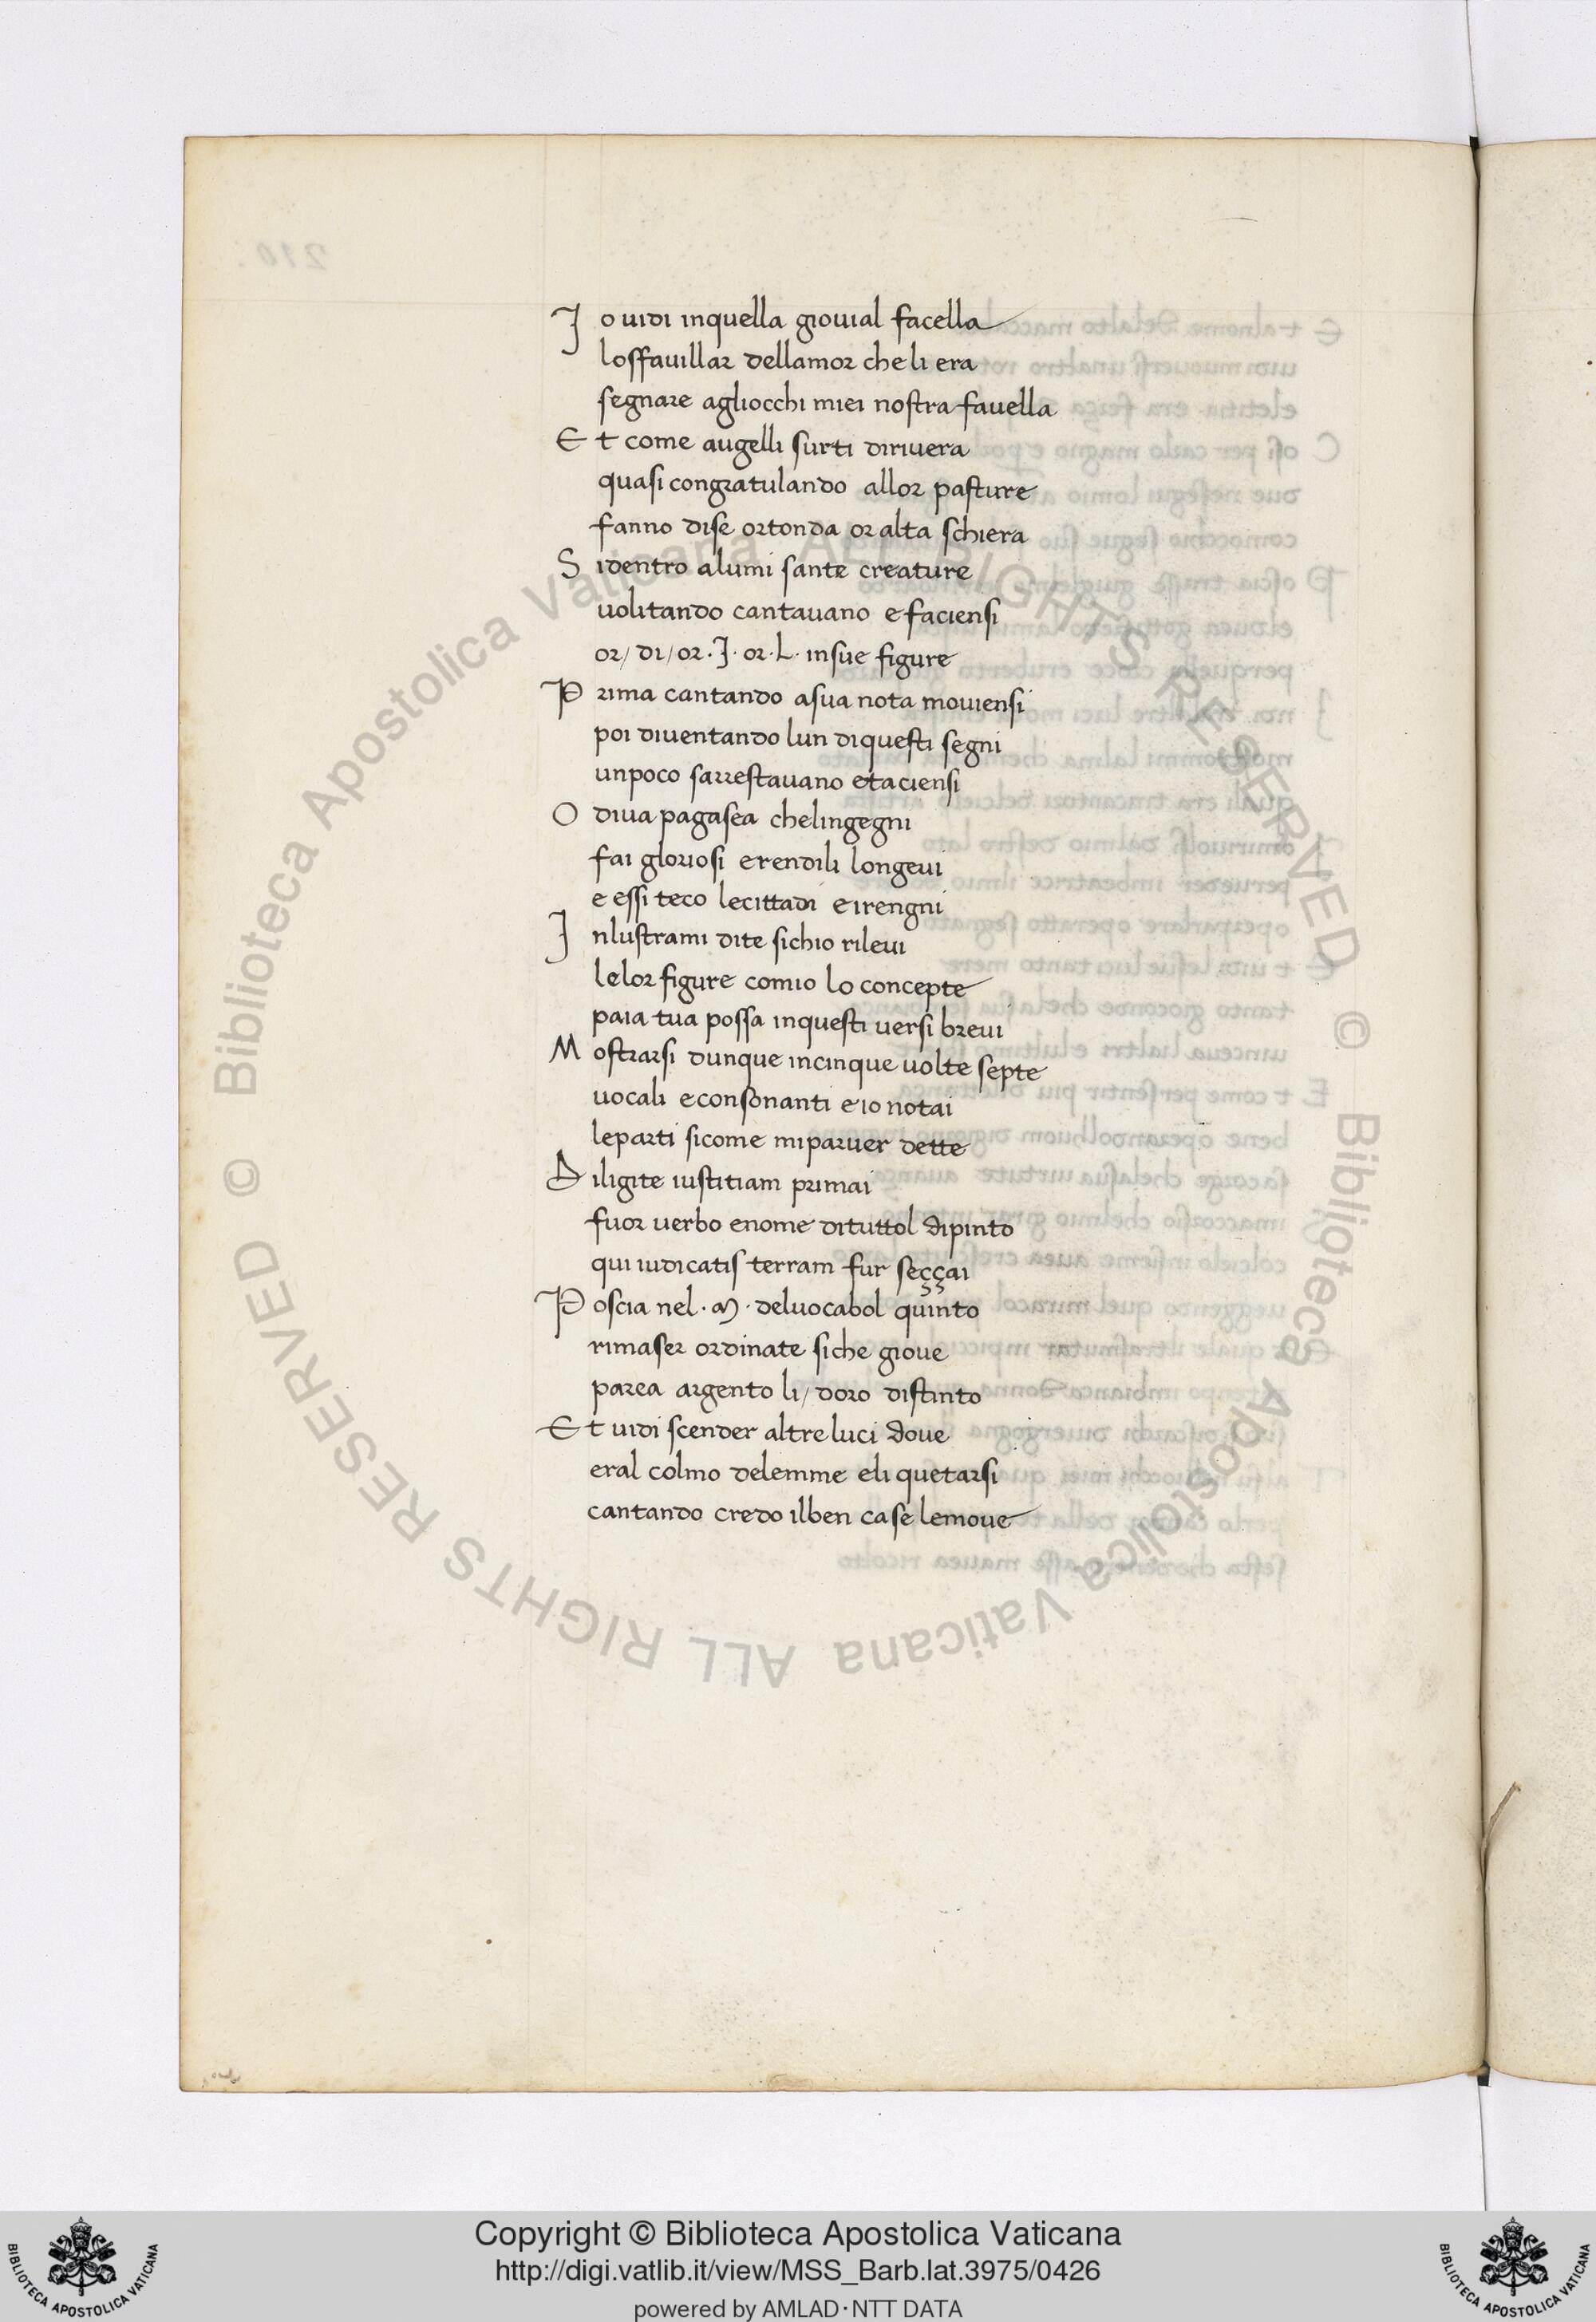 I o uidi inquella giouial facella
losfauillar dellamor che li era
segnare agliocchi miei nostra fauella
E t come augelli surti diriuera
quasi congratulando allor pasture
fanno dise ortonda or alta schiera
S identro alumi sante creature
uolitando cantauano e faciensi
or/ di/ or · I · or · L · insue figure
P rima cantando asua nota mouiensi
poi diuentando lun diquesti segni
unpoco sarrestauano etaciensi
O diua pagasea chelingegni
fai gloriosi erendili longeui
e essi teco lecittadi eirengni
I nlustrami dite sichio rileui
lelor figure comio lo concepte
paia tua possa inquesti uersi breui
M ostrarsi dunque incinque uolte septe
uocali econsonanti eio notai
leparti sicome miparuer dette
D iligite iustitiam primai
fuor uerbo enome dituttol dipinto
qui iudicatis terram fur seççai
P oscia nel · M · deluocabol quinto
rimaser ordinate siche gioue
parea argento li/ doro distinto
E t uidi scender altre luci doue
eral colmo delemme eli quetarsi
cantando credo ilben case lemoue
© Biblioteca Apostolica Vaticana ALL RIGHTS RESERVED © Biblioteca Apostolica Vaticana ALL RIGHTS RESERVED
Copyright © Biblioteca Apostolica Vaticana
http://digi.vatlib.it/view/MSS_Barb.lat.3975/0426
powered by AMLAD · NTT DATA
BIBLIOTECA APOSTOLICA VATICANA
BIBLIOTECA APOSTOLICA VATICANA